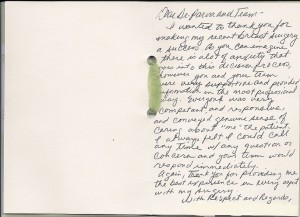 Dear Dr. Parva and Team -
I wanted to thank you for
making my recent breast surgery
a success. As you can imagine
there is a lot of anxiety that
goes into this decision process,
however you and your team
were very supportive and provided
information in the most professional
way. Everyone was very
competent and responsive,
and conveyed genuine sense of
caring about "me" the patient.
I always felt I could call
any time w/ any question or
concern and your team would
respond immediately.
Again, thank you for providing me
the best experience in every aspect
with my surgery
With Respect and Regards,